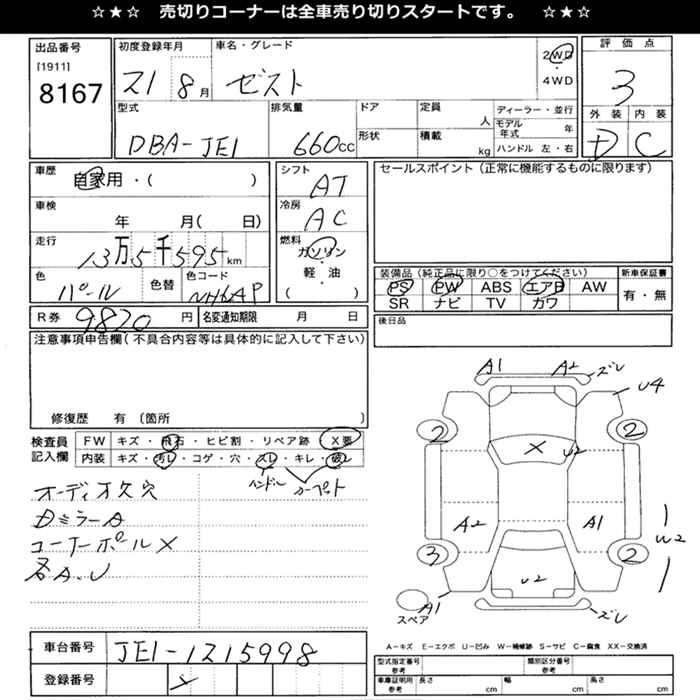 ☆★☆ 売切りコーナーは全車売り切りスタートです。 ☆★☆
出品番号
[1911]
8167
初度登録年月
21 8月
車名・グレード
ゼスト
2WD
・
4WD
評価点
3
外装 内装
D C
型式
DBA-JE1
排気量
660cc
ドア
形状
定員
人
積載
kg
ディーラー・並行
モデル年式 年
ハンドル 左・右
車歴
自家用・( )
車検
年 月( 日)
走行
13万5千595km
色
パール
色替
色コード
NH624P
R券
9820円
名変通知期限 月 日
シフト
AT
冷房
AC
燃料
ガソリン
・
軽・油
( )
セールスポイント(正常に機能するものに限ります)
装備品(純正品に限り○をつけてください)
PS PW ABS エアB AW
SR ナビ TV カワ
新車保証書
有・無
後日品
注意事項申告欄(不具合内容等は具体的に記入して下さい)
修復歴 有 [箇所 ]
検査員記入欄
FW キズ・飛石・ヒビ割・リペア跡 X要
内装 キズ・汚レ・コゲ・穴・スレ・キレ・破レ
ハンドル カーペット
オーディオ欠穴
DミラーA
コーナーポールX
各A.U
A1 A2 ズレ
U4
2 2
X U2
A2 A1
W2
3 2
U2
スペア
A1 ズレ
A−キズ E−エクボ U−凹み W−補修跡 S−サビ C−腐食 XX−交換済
車台番号
JE1-1215998
登録番号
メ
型式指定番号 参考
類別区分番号 参考
車庫証明用 参考
長さ cm
幅 cm
高さ cm